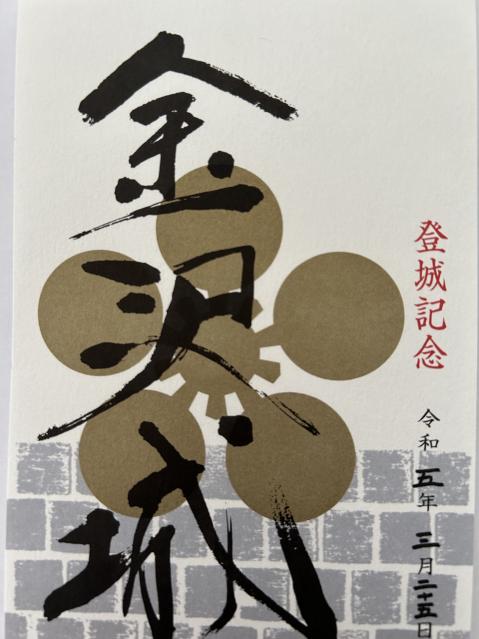 登城記念
令和五年三月二十五日
金沢城